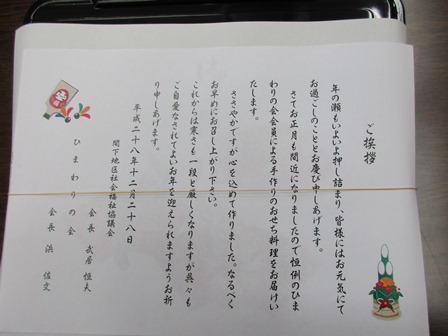 ご挨拶
年の瀬もいよいよ押し詰まり、皆様にはお元気にて
お過ごしのこととお慶び申しあげます。
さてお正月も間近になりましたので恒例のひま
わりの会会員による手作りのおせち料理をお届けい
たします。
ささやかですが心を込めて作りました。なるべく
お早めにお召し上がり下さい。
これからは寒さも一段と厳しくなりますが呉々も
ご自愛なされてよいお年を迎えられますようお祈
り申しあげます。
平成二十八年十二月二十八日
間下地区社会福祉協議会
会長 武居 恒夫
ひまわりの会
会長 浜 佐文